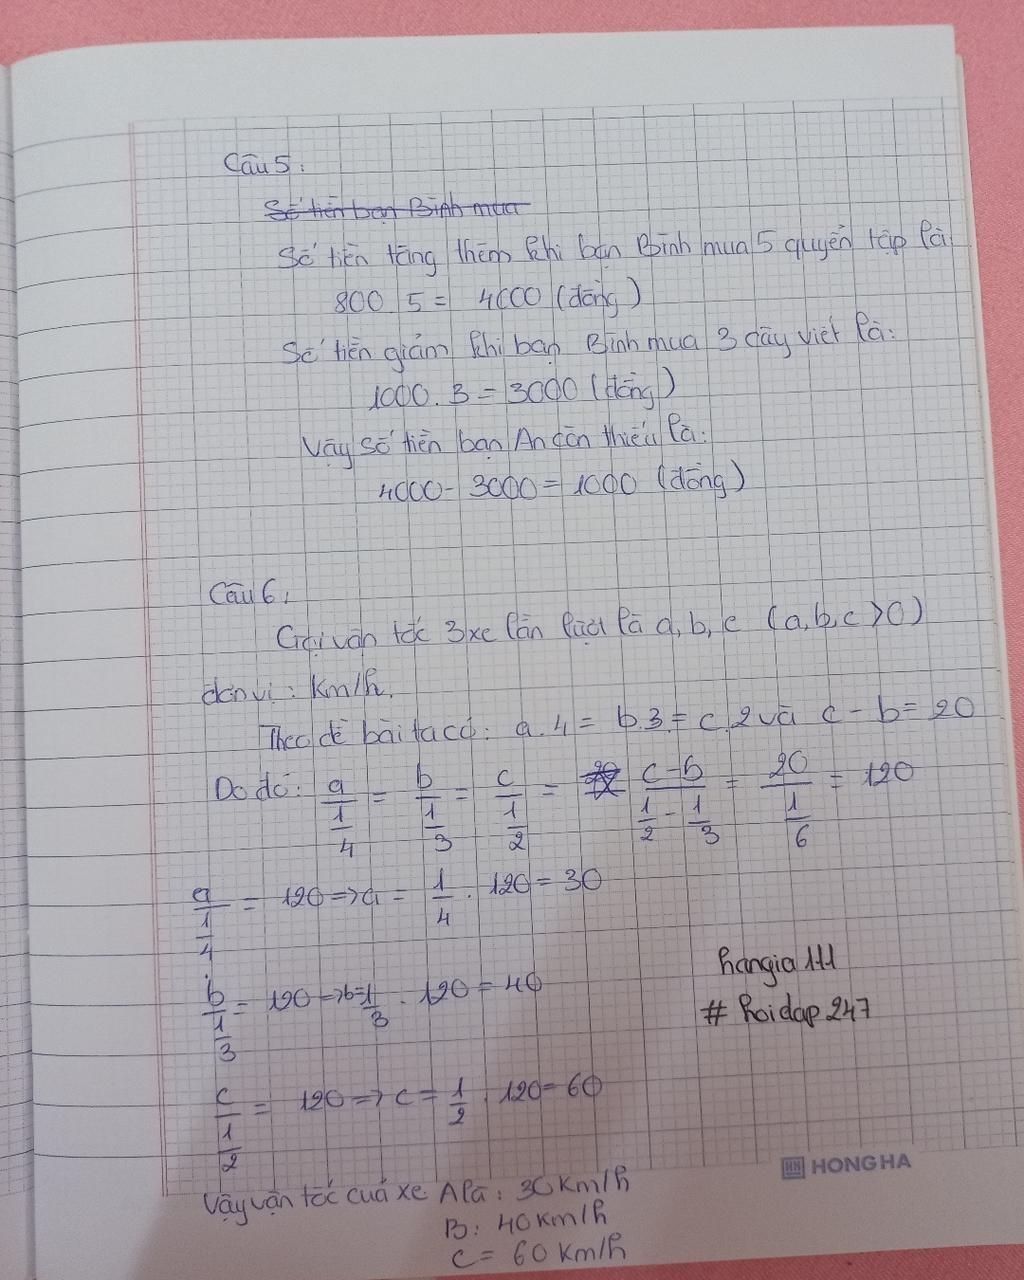 Câu 5:
Số tiền bạn Bình mua
Số tiền tăng thêm khi bạn Bình mua 5 quyển tập là
800 . 5 = 4000 (đồng)
Số tiền giảm khi bạn Bình mua 3 cây viết là:
1000 . 3 = 3000 (đồng)
Vậy số tiền bạn An còn thiếu là:
4000 - 3000 = 1000 (đồng)
Câu 6:
Gọi vận tốc 3 xe lần lượt là a, b, c (a, b, c > 0)
đơn vị : Km/h.
Theo đề bài ta có: a . 4 = b . 3 = c . 2 và c - b = 20
Do đó: a/(1/4) = b/(1/3) = c/(1/2) = (c - b)/(1/2 - 1/3) = 20/(1/6) = 120
a/(1/4) = 120 => a = 1/4 . 120 = 30
b/(1/3) = 120 => b = 1/3 . 120 = 40
c/(1/2) = 120 => c = 1/2 . 120 = 60
hangia 111
# hoidap 247
HH HONG HA
Vậy vận tốc của xe A là : 30 Km/h
B : 40 Km/h
C = 60 Km/h